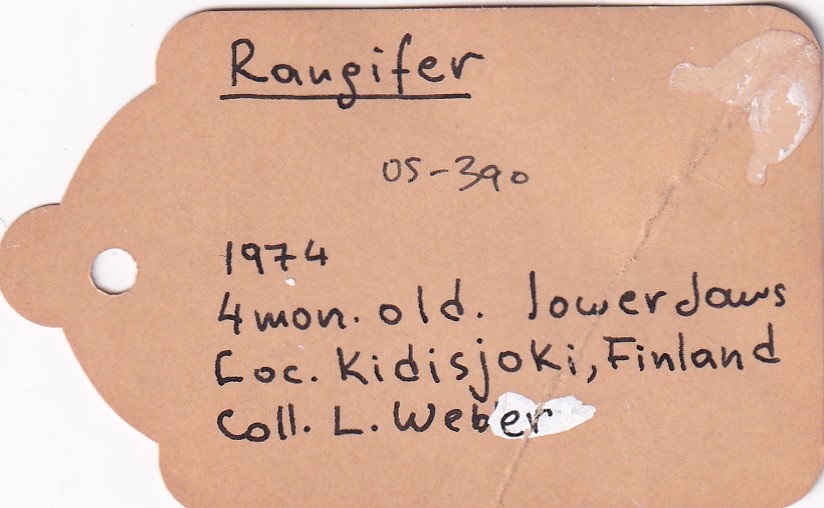 Rangifer
OS-390
1974
4 mon. old. lower Jaws
Loc. Kidisjoki, Finland
Coll. L. Weber